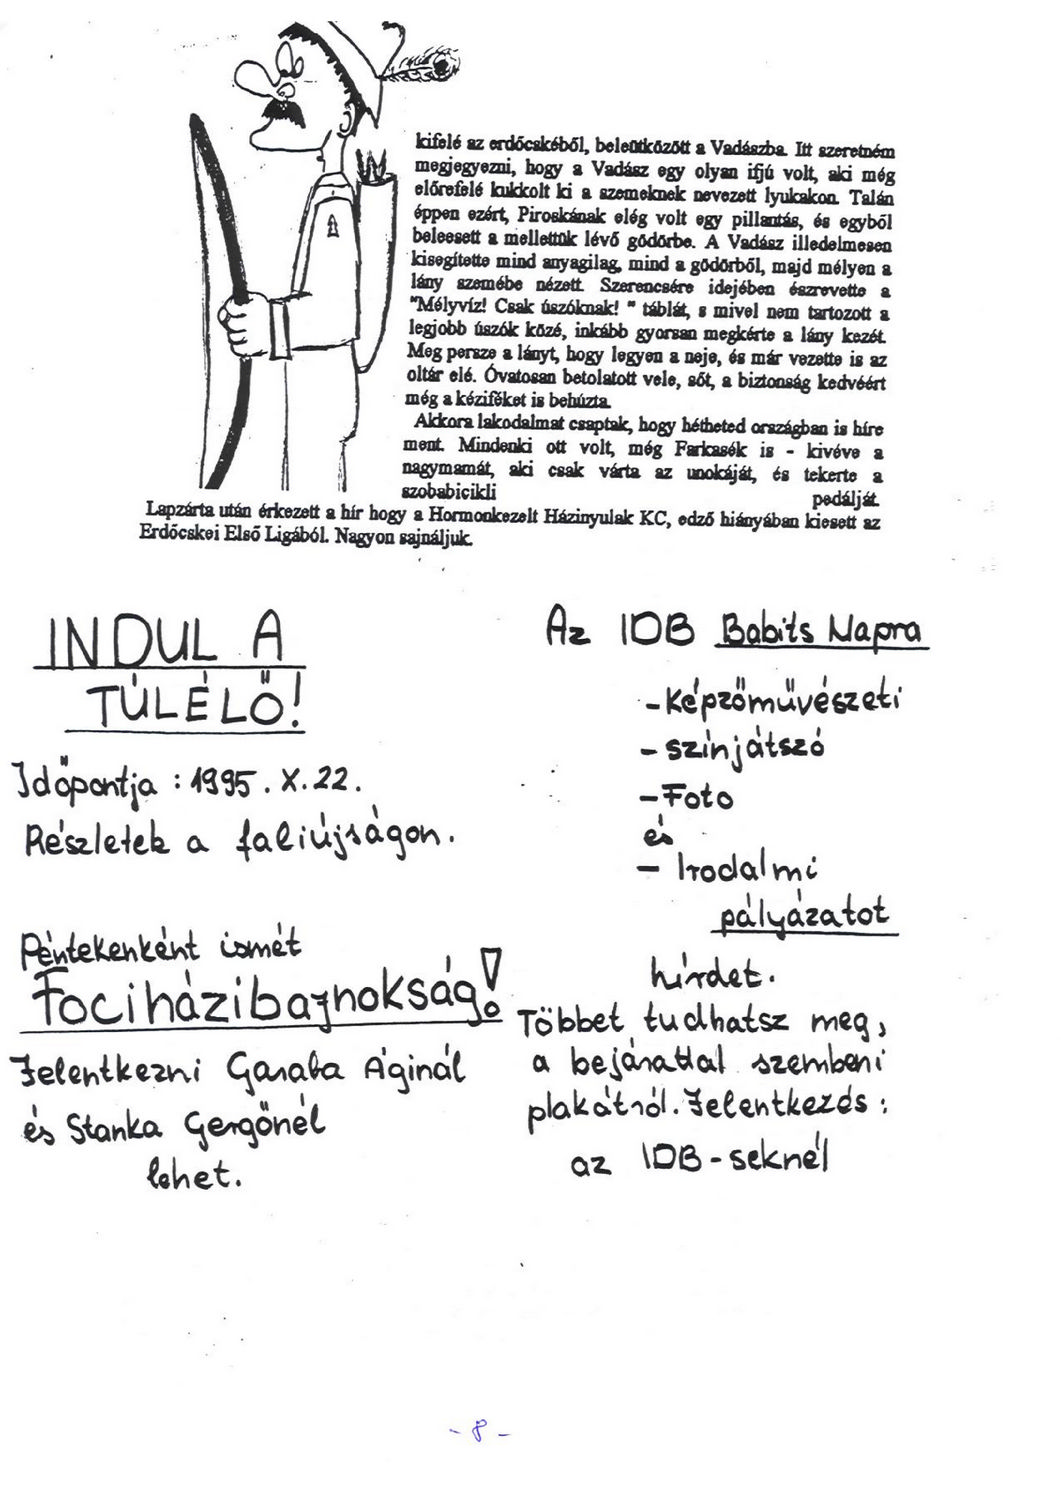 kifelé az erdőcskéből, beleütközött a Vadászba. Itt szeretném
megjegyezni, hogy a Vadász egy olyan ifjú volt, aki még
előrefelé kukkolt ki a szemeknek nevezett lyukakon. Talán
éppen ezért, Piroskának elég volt egy pillantás, és egyből
beleesett a mellettük lévő gödörbe. A Vadász illedelmesen
kisegítette mind anyagilag, mind a gödörből, majd mélyen a
lány szemébe nézett. Szerencsére idejében észrevette a
"Mélyvíz! Csak úszóknak! " táblát, s mivel nem tartozott a
legjobb úszók közé, inkább gyorsan megkérte a lány kezét.
Meg persze a lányt, hogy legyen a neje, és már vezette is az
oltár elé. Óvatosan betolatott vele, sőt, a biztonság kedvéért
még a kéziféket is behúzta.
Akkora lakodalmat csaptak, hogy hétheted országban is híre
ment. Mindenki ott volt, még Farkasék is - kivéve a
nagymamát, aki csak várta az unokáját, és tekerte a
szobabicikli pedálját.
Lapzárta után érkezett a hír hogy a Hormonkezelt Házinyulak KC, edző hiányában kiesett az
Erdőcskei Első Ligából. Nagyon sajnáljuk.
INDUL A
TÚLÉLŐ!
Időpontja : 1995. X. 22.
Részletek a faliújságon.
Péntekenként ismét
Fociházibajnokság!
Jelentkezni Garaba Áginál
és Stanka Gergőnél
lehet.
Az IDB Babits Napra
- Képzőművészeti
- színjátszó
- Foto
és
- Irodalmi
pályázatot
hirdet.
Többet tudhatsz meg,
a bejárattal szembeni
plakátról. Jelentkezés :
az IDB-seknél
- 8 -